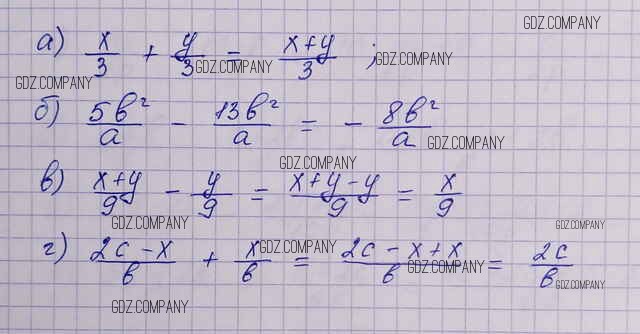 GDZ.COMPANY
а) x/3 + y/3 = (x+y)/3 ;
GDZ.COMPANY
GDZ.COMPANY
GDZ.COMPANY
б) 5b²/a − 13b²/a = − 8b²/a
GDZ.COMPANY
GDZ.COMPANY
в) (x+y)/9 − y/9 = (x+y−y)/9 = x/9
GDZ.COMPANY
GDZ.COMPANY
г) (2c−x)/b + x/b = (2c−x+x)/b = 2c/b
GDZ.COMPANY
GDZ.COMPANY
GDZ.COMPANY
GDZ.COMPANY